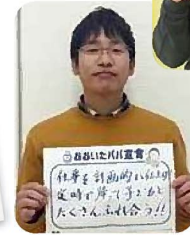 おおいたパパ宣言
仕事を計画的に仕上げ
定時で帰って子どもと
たくさんふれ合う!!